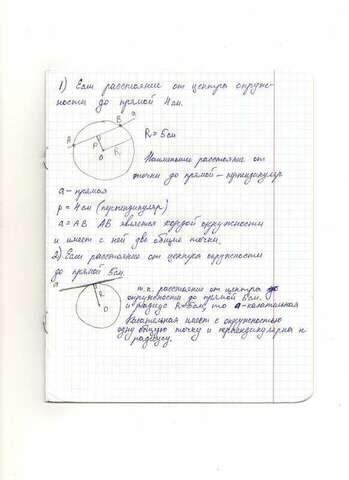 1) Если расстояние от центра окруж-
ности до прямой 4 см.
А В а
R = 5 см
р R
О
Наименьшее расстояние от
точки до прямой – перпендикуляр
а – прямая
р = 4 см (перпендикуляр)
а = АВ АВ является хордой окружности
и имеет с ней две общие точки.
2) Если расстояние от центра окружности
до прямой 5 см.
а
R
О
т.к. расстояние от центра до
окружености до прямой 5 см.
и радиус R = 5 см, то а – касательная
Касательная имеет с окружностью
одну общую точку и перпендикулярна к
радиусу.